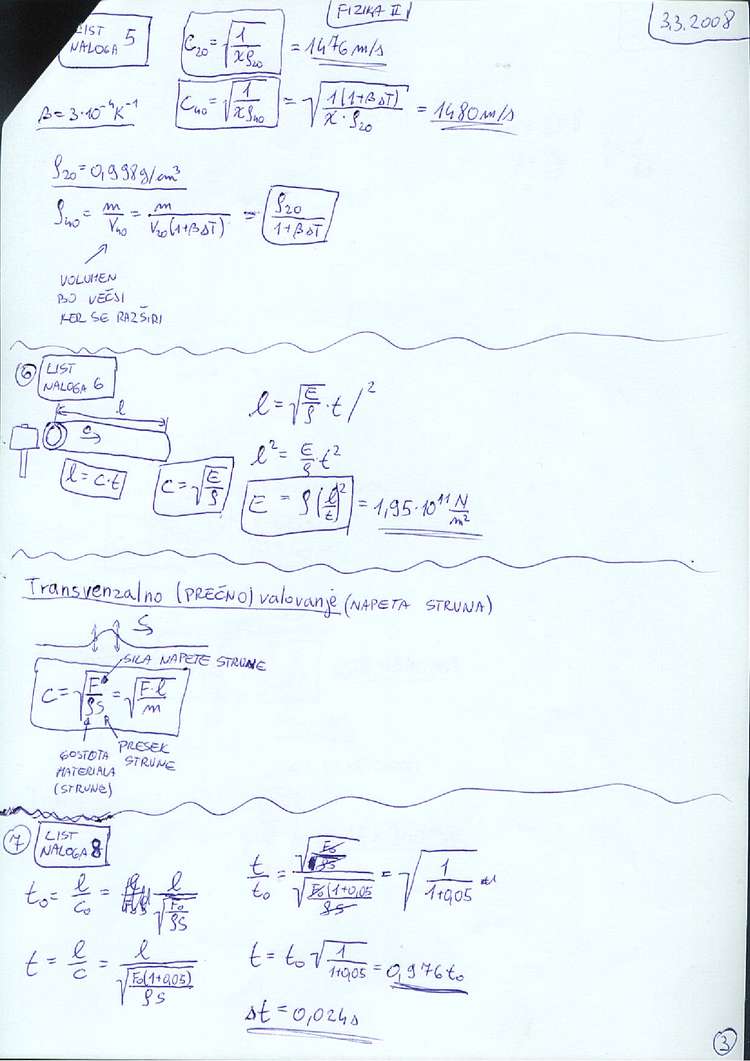 FIZIKA II
3.3.2008
LIST NALOGA 5
C₂₀ = √(1/(χρ₂₀)) = 1476 m/s
β = 3·10⁻⁴K⁻¹
C₄₀ = √(1/(χρ₄₀)) = √(1(1+βΔT)/(χ·ρ₂₀)) = 1480 m/s
ρ₂₀ = 0,998g/cm³
ρ₄₀ = m/V₄₀ = m/(V₂₀(1+βΔT)) = ρ₂₀/(1+βΔT)
VOLUMEN
BO VEČJI
KER SE RAZŠIRI
⑥ LIST
NALOGA 6
l
c
l = c·t
c = √(E/ρ)
l = √(E/ρ)·t /²
l² = E/ρ·t²
E = ρ(l/t)² = 1,95·10¹¹ N/m²
Transvenzalno (PREČNO) valovanje (NAPETA STRUNA)
SILA NAPETE STRUNE
c = √(F/(ρS)) = √(F·l/m)
GOSTOTA
MATERIALA
(STRUNE)
PRESEK
STRUNE
⑦ LIST
NALOGA 8
t₀ = l/c₀ = l/√(F₀/(ρS))
t = l/c = l/√(F₀(1+0,05)/(ρS))
t/t₀ = √(F₀/(ρS))/√(F₀(1+0,05)/(ρS)) = √(1/(1+0,05))
t = t₀√(1/(1+0,05)) = 0,976t₀
Δt = 0,024s
③